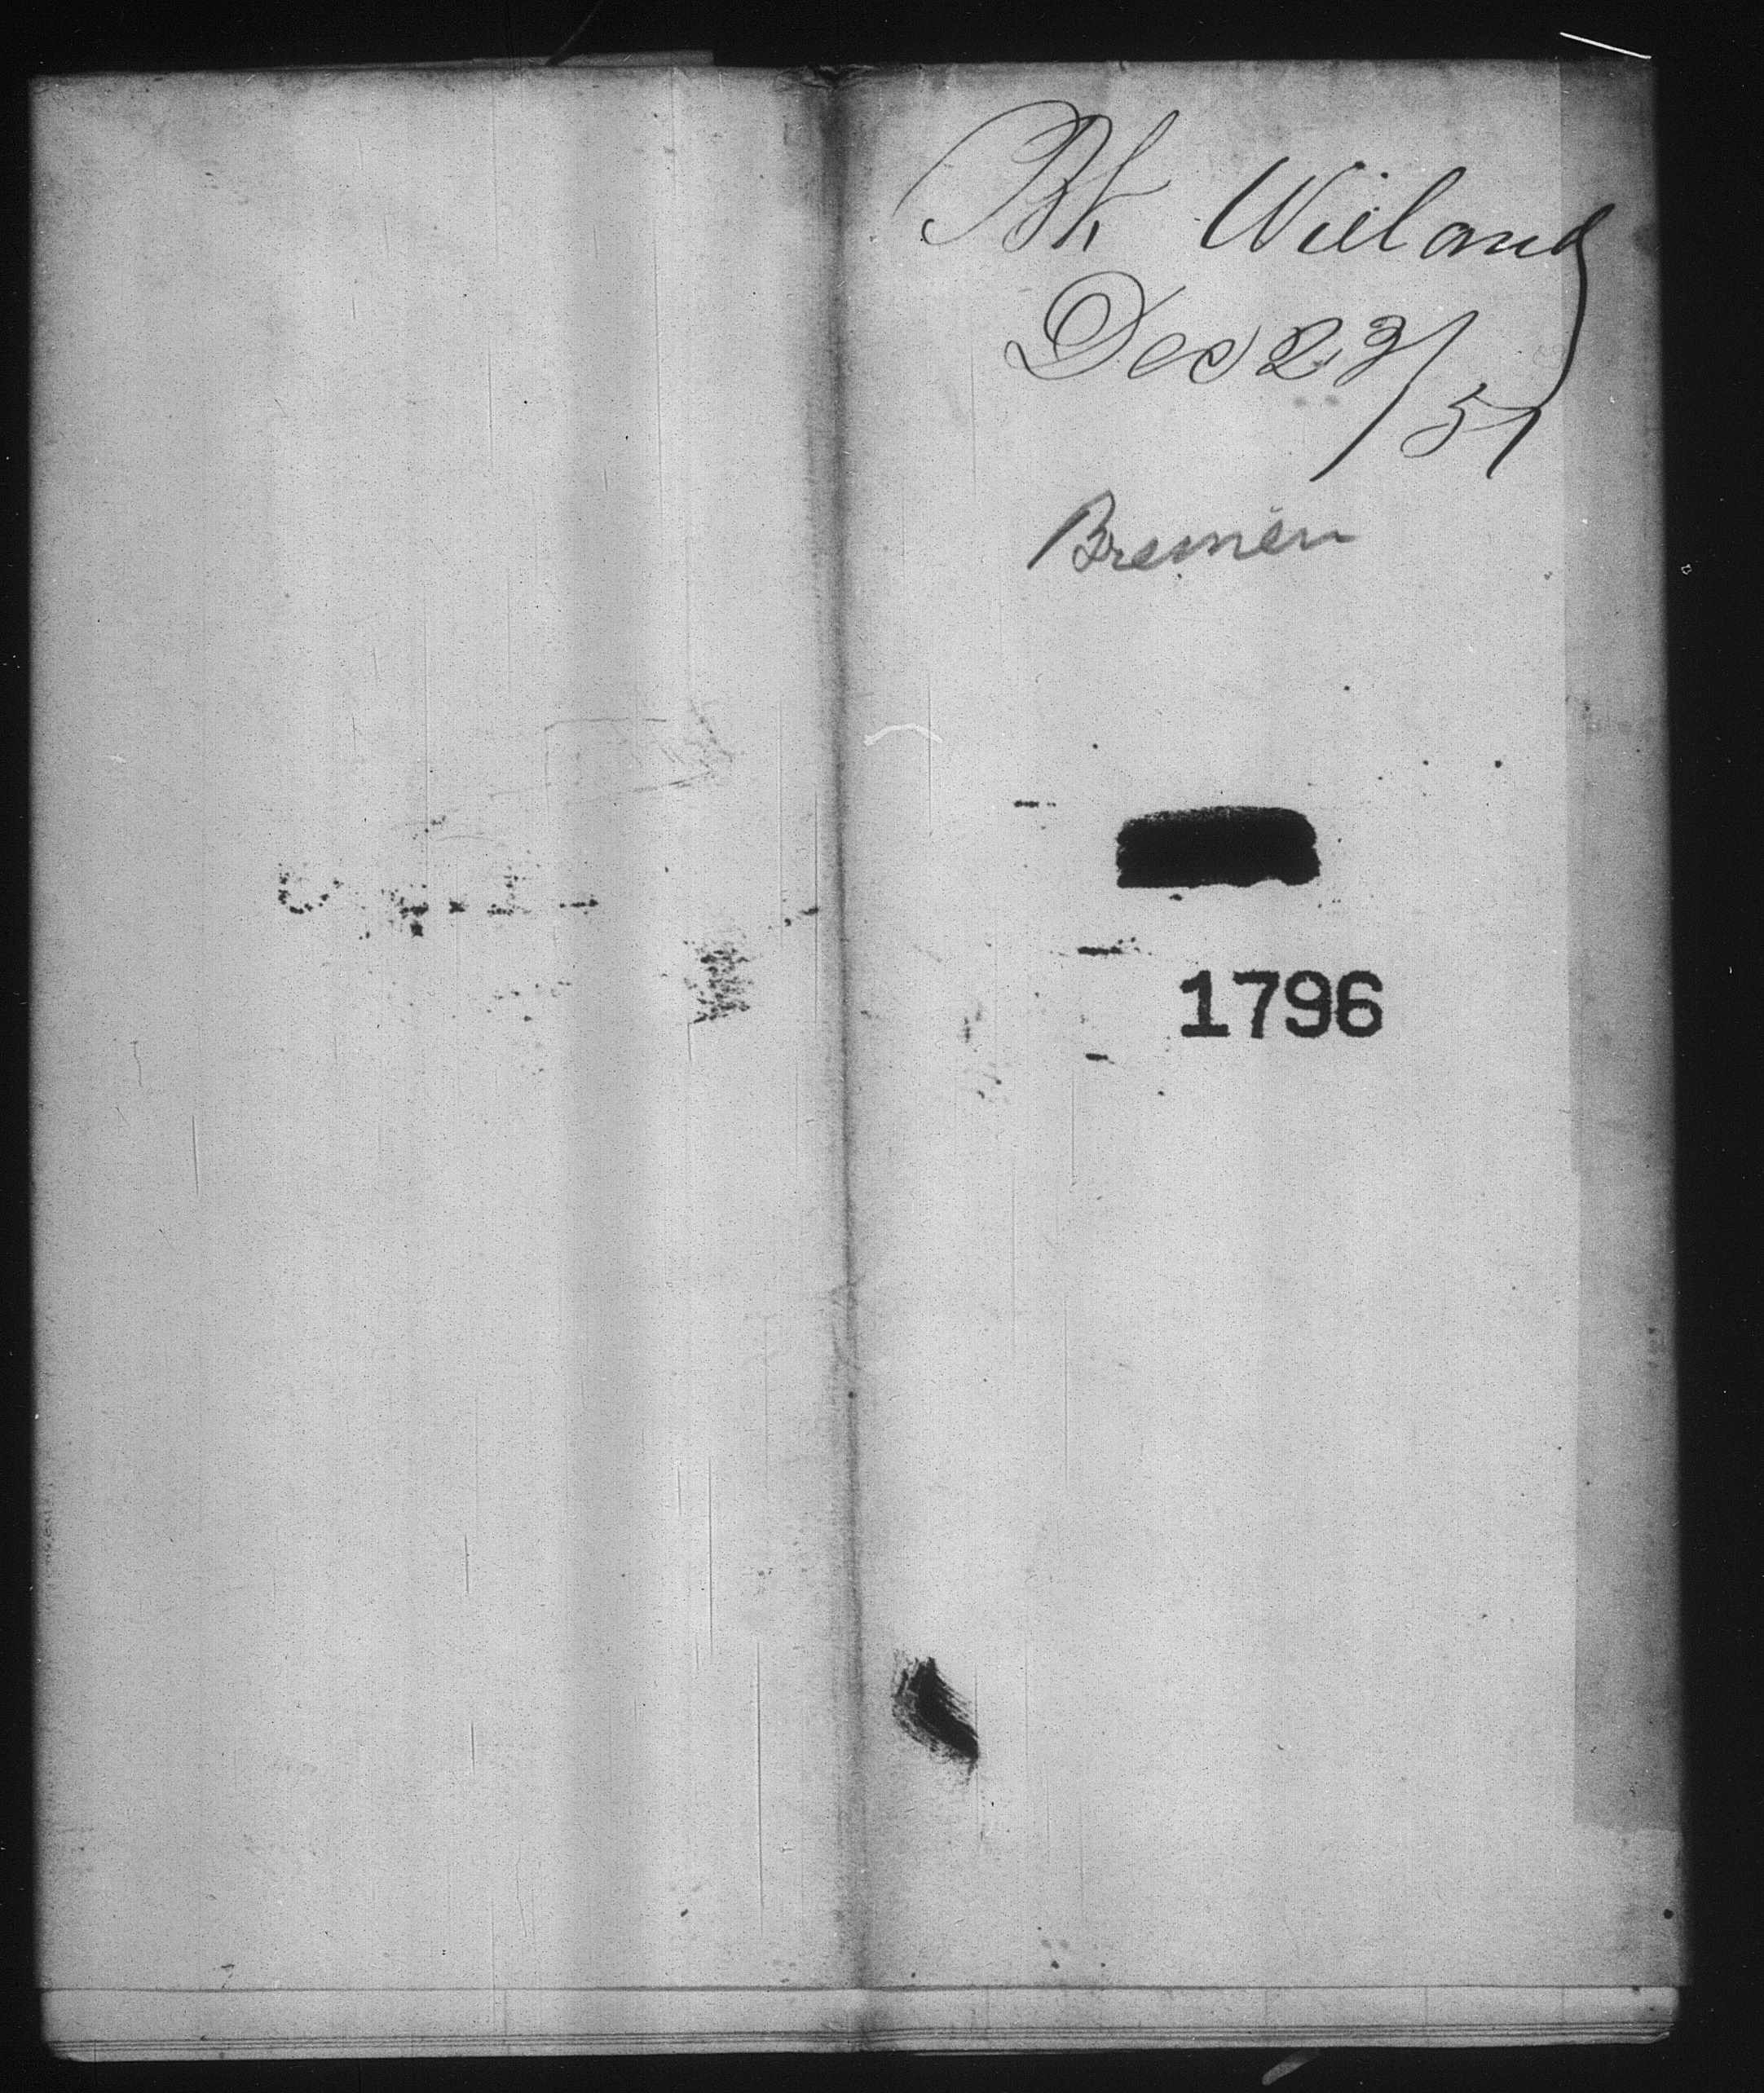 Bk Wieland
Dec 23/51
Bremen
1796